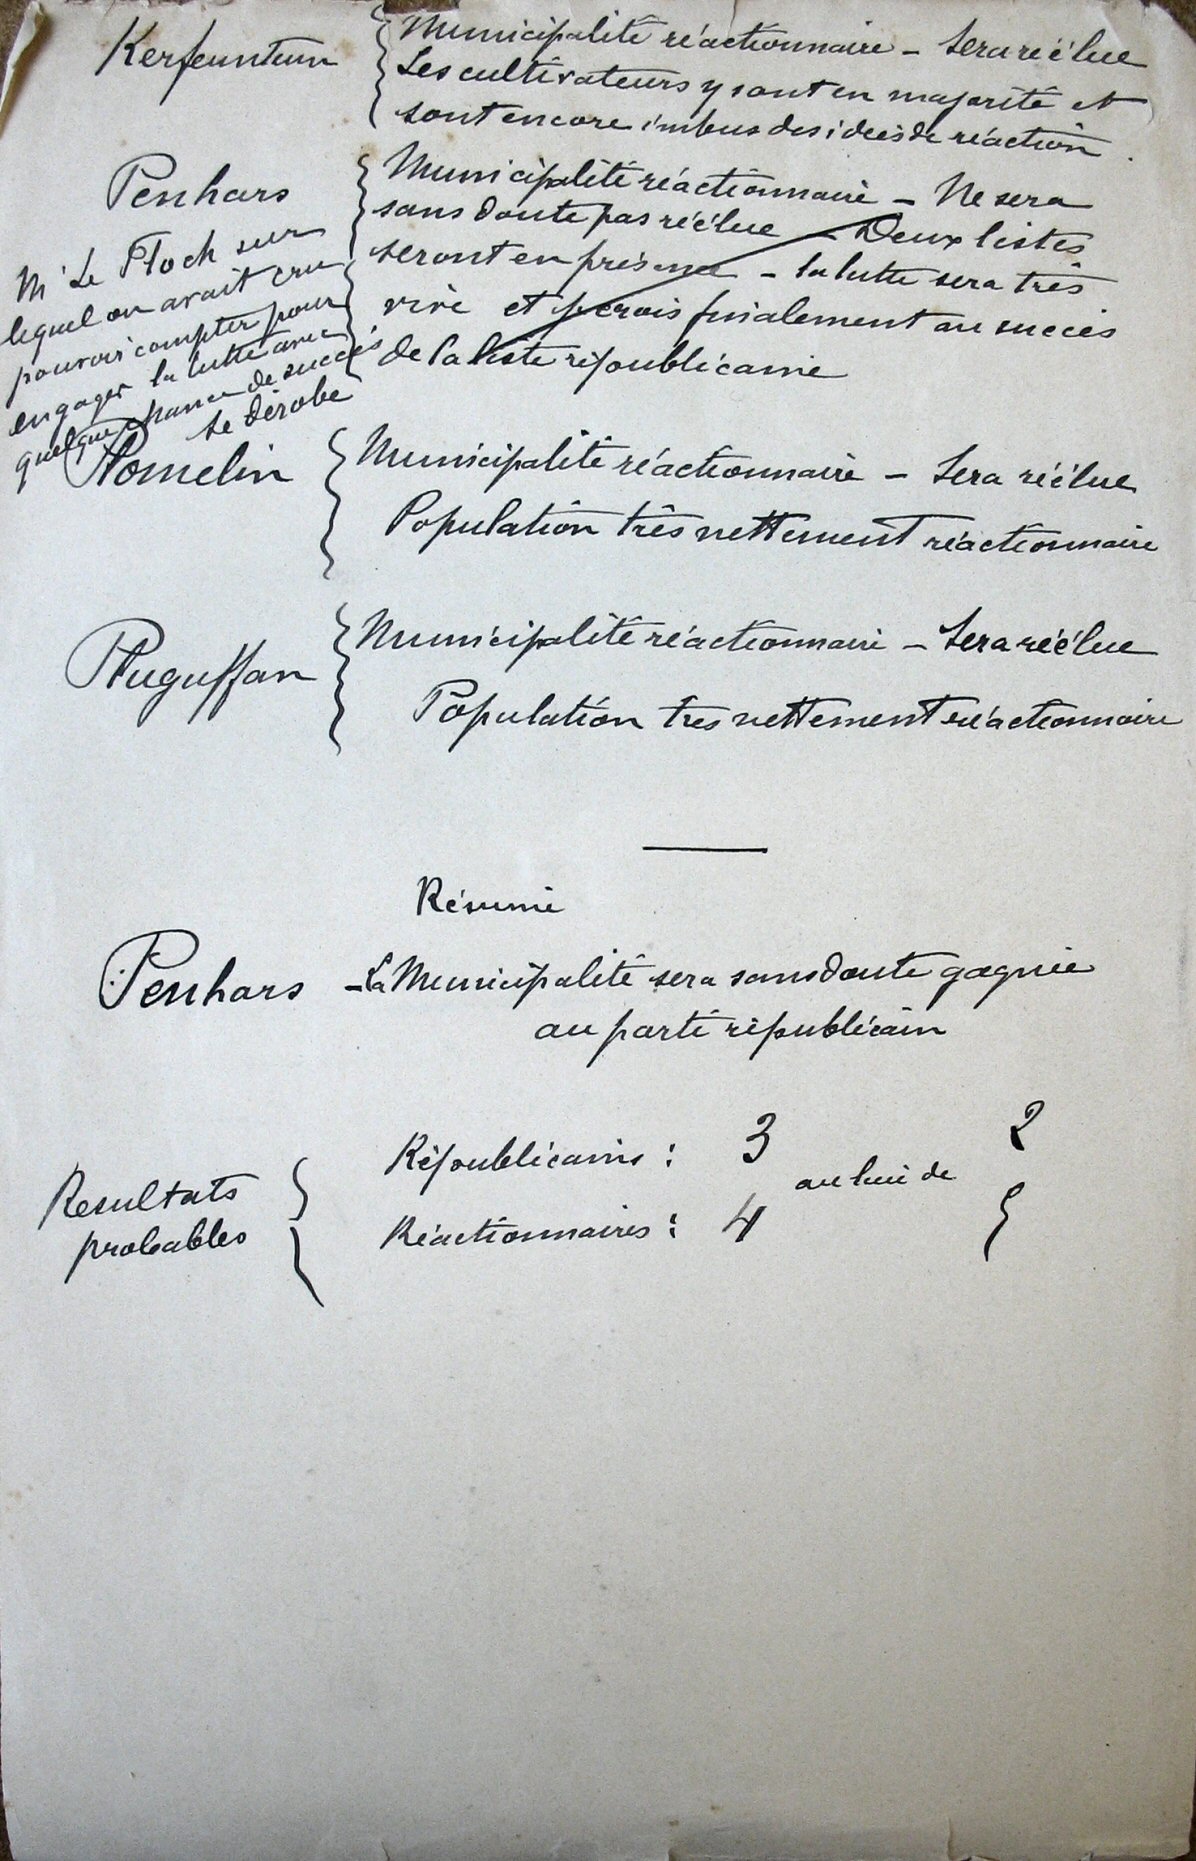 Kerfeunteun
Municipalité réactionnaire – Sera réélue
Les cultivateurs y sont en majorité et
sont encore imbus des idées de réaction.
Penhars
Municipalité réactionnaire – Ne sera
sans doute pas réélue – Deux listes
seront en présence – la lutte sera très
vive et je crois finalement au succès
de la liste républicaine
Mr Le Floch sur
lequel on avait cru
pouvoir compter pour
engager la lutte avec
quelque chance de succès
se dérobe
Plomelin
Municipalité réactionnaire – Sera réélue
Population très nettement réactionnaire
Pluguffan
Municipalité réactionnaire – Sera réélue
Population très nettement réactionnaire
Résumé
Penhars – La Municipalité sera sans doute gagnée
au parti républicain
Resultats
probables
Républicains : 3 2
au lieu de
Réactionnaires : 4 5